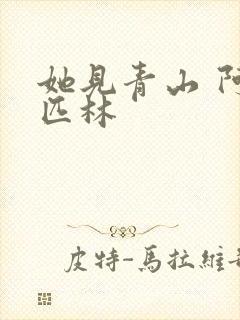 她見青山 阿
匹林
皮特-馬拉維